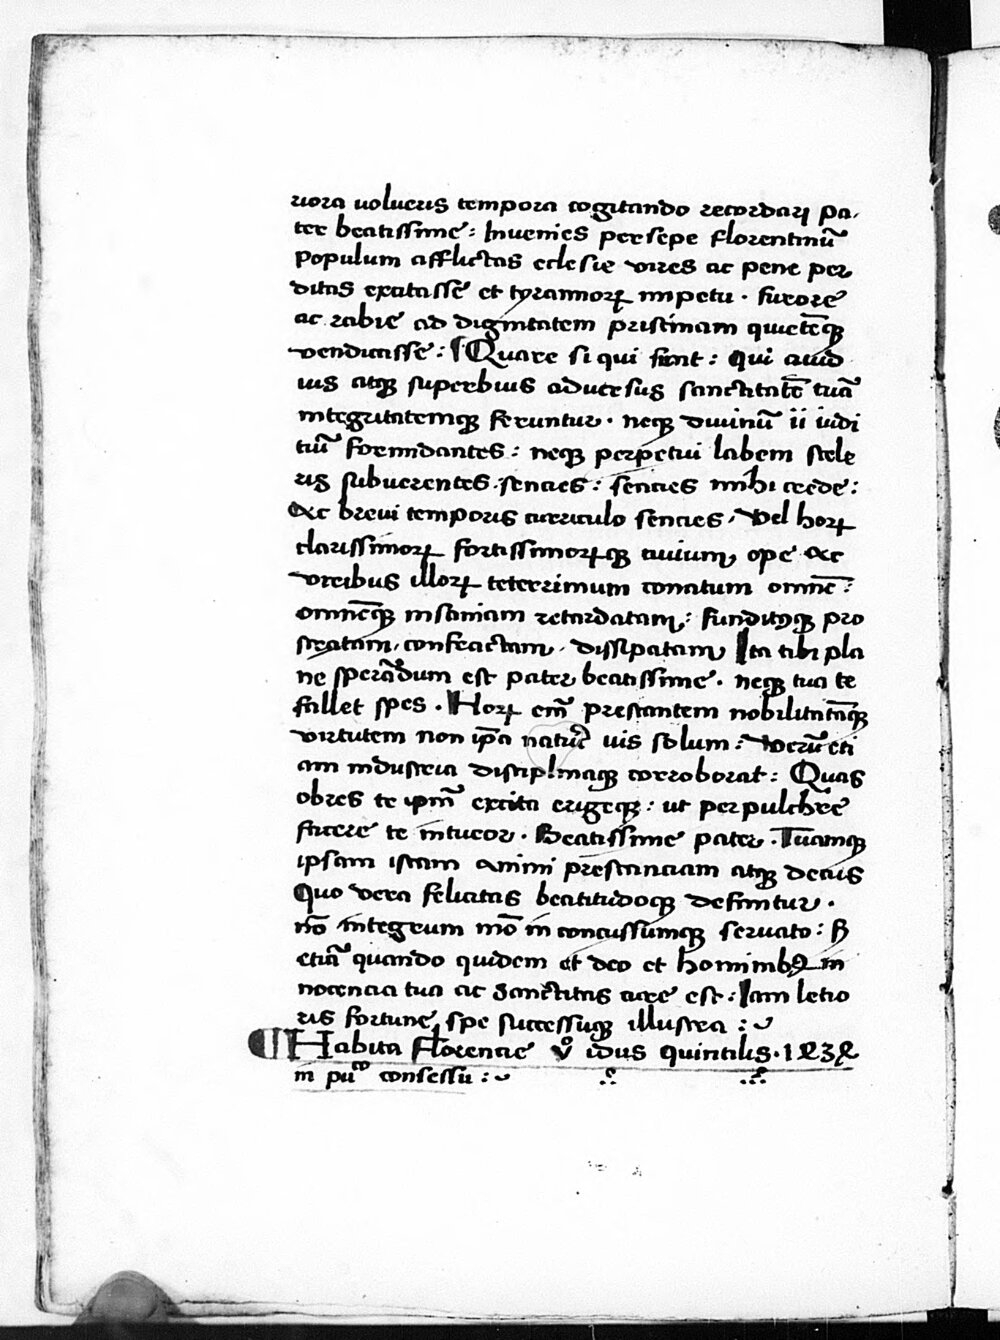 riora uolueris tempora cogitando recordari pa-
ter beatissime : Inuenies persepe florentinū
populum afflictas eclesie vires ac pene per
ditas excitasse et tyrannorꝝ impetu · furore
ac rabie ad dignitatem pristinam quietēqꝫ
vendicasse : Quare si qui sunt : qui auid
ius atqꝫ superbius aduersus sanctitatē tuā
integritatemqꝫ feruntur · neqꝫ diuinū ii iudi
tiū formidantes : neqꝫ perpetui labem scele
ris subuerentes . senties : senties mihi crede :
&c brevi temporis curriculo senties . Vel horꝝ
clarissimorꝝ fortissimorꝝqꝫ ciuium ope &c
viribus illorꝝ teterrimum conatum omnē :
omnēqꝫ insaniam retardatam : funditusqꝫ pro
stratam . confractam . dissipatam Ita tibi pla
ne sperādum est pater beatissime . neqꝫ tua te
fallet spes . Horꝝ em̄ prestantem nobilitatāqꝫ
virtutem non ip̄a uis solum : Verū eti
am industria disciplinaqꝫ corroborat : Quas
obres te ip̄m̄ excita erigeqꝫ : ut perpulchre
facere te intueor . Beatissime pater . Tuamqꝫ
ipsam istam animi prēstanciam atqꝫ decus
Quo vera felicitas beatitudoqꝫ definitur .
nō integrum mō inconcussumqꝫ seruato : ẞ
etiā quando quidem et deo et hominibꝫ in
nocencia tua ac Sanctitas cure est : Iam letio
ris fortune spe successuqꝫ illustra :
Habita Florencie vͦ idus quintilis . 1434
in pu͞co consessu :